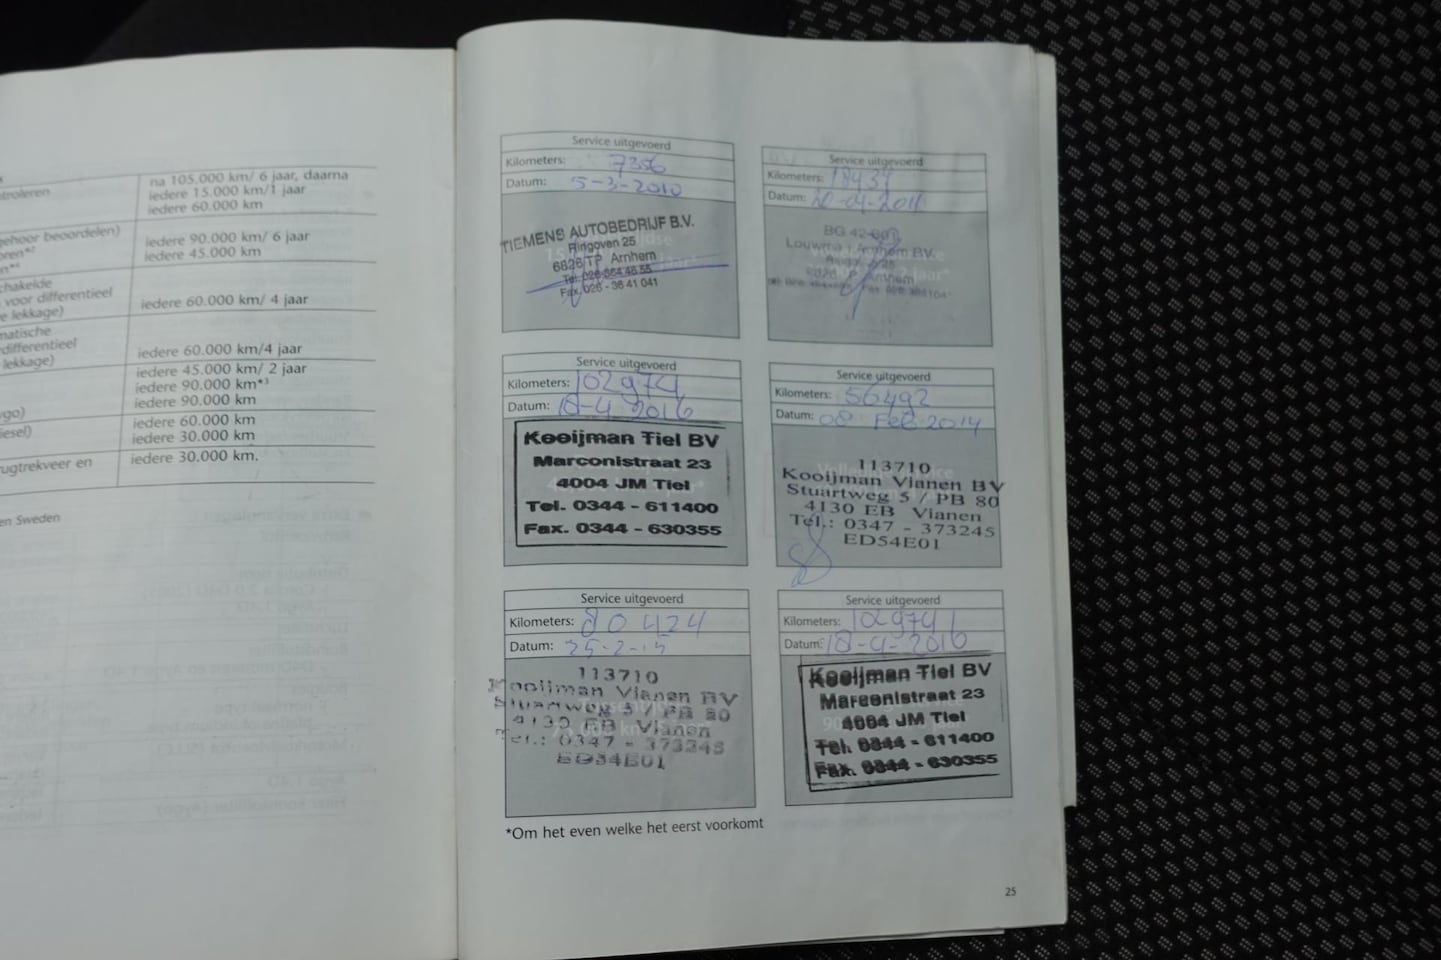 ntroleren
na 105.000 km/ 6 jaar, daarna
iedere 15.000 km/1 jaar
iedere 60.000 km
gehoor beoordelen)
iedere 90.000 km/ 6 jaar
iedere 45.000 km
chakelde
voor differentieel
e lekkage)
iedere 60.000 km/ 4 jaar
matische
differentieel
lekkage)
iedere 60.000 km/4 jaar
iedere 45.000 km/ 2 jaar
iedere 90.000 km*³
iedere 90.000 km
ygo)
iedere 60.000 km
iesel)
iedere 30.000 km
rugtrekveer en
iedere 30.000 km.
en Sweden
Service uitgevoerd
Kilometers: 7356
Datum: 5-3-2010
TIEMENS AUTOBEDRIJF B.V.
Ringoven 25
6826 TP Arnhem
Tel. 026-364 46 55
Fax. 026 - 36 41 041
Service uitgevoerd
Kilometers: 18937
Datum: 20-04-2011
BG 42-001
Louwman Arnhem BV.
Arnhem
Service uitgevoerd
Kilometers: 102974
Datum: 18-4-2016
Kooijman Tiel BV
Marconistraat 23
4004 JM Tiel
Tel. 0344 - 611400
Fax. 0344 - 630355
Service uitgevoerd
Kilometers: 56492
Datum: 08 Feb 2014
113710
Kooijman Vianen BV
Stuartweg 5 / PB 80
4130 EB Vianen
Tel.: 0347 - 373245
ED54E01
Service uitgevoerd
Kilometers: 80424
Datum: 25-2-15
113710
Kooijman Vianen BV
Stuartweg 5 / PB 80
4130 EB Vianen
Tel.: 0347 - 373245
ED54E01
Service uitgevoerd
Kilometers: 102974
Datum: 18-4-2016
Kooijman Tiel BV
Marconistraat 23
4004 JM Tiel
Tel. 0344 - 611400
Fax. 0344 - 630355
*Om het even welke het eerst voorkomt
25